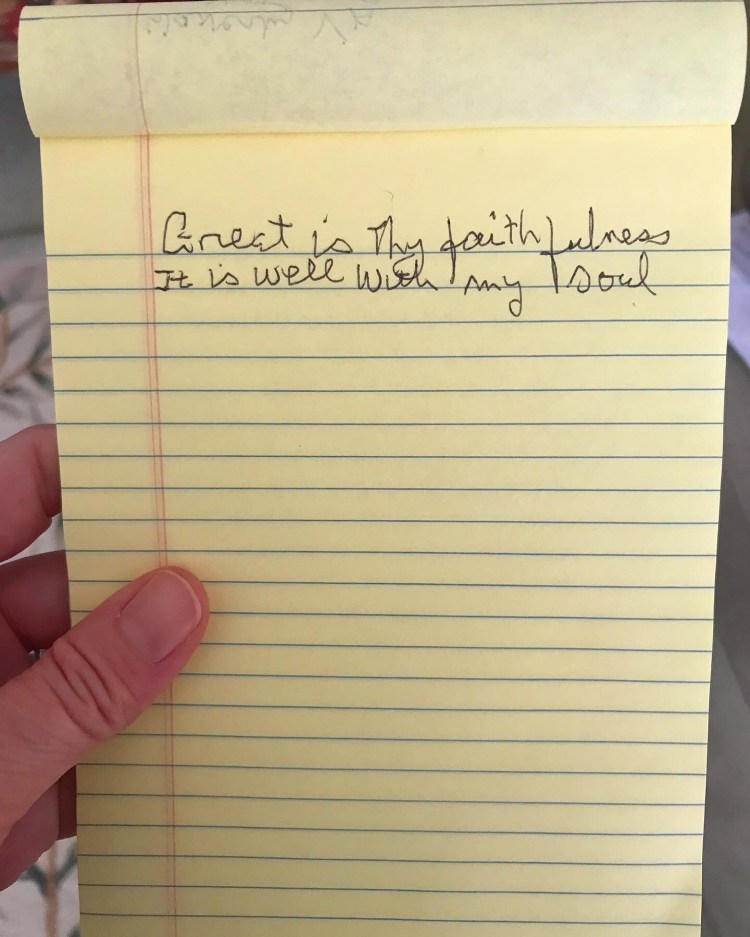 Great is Thy faithfulness
It is well with my soul